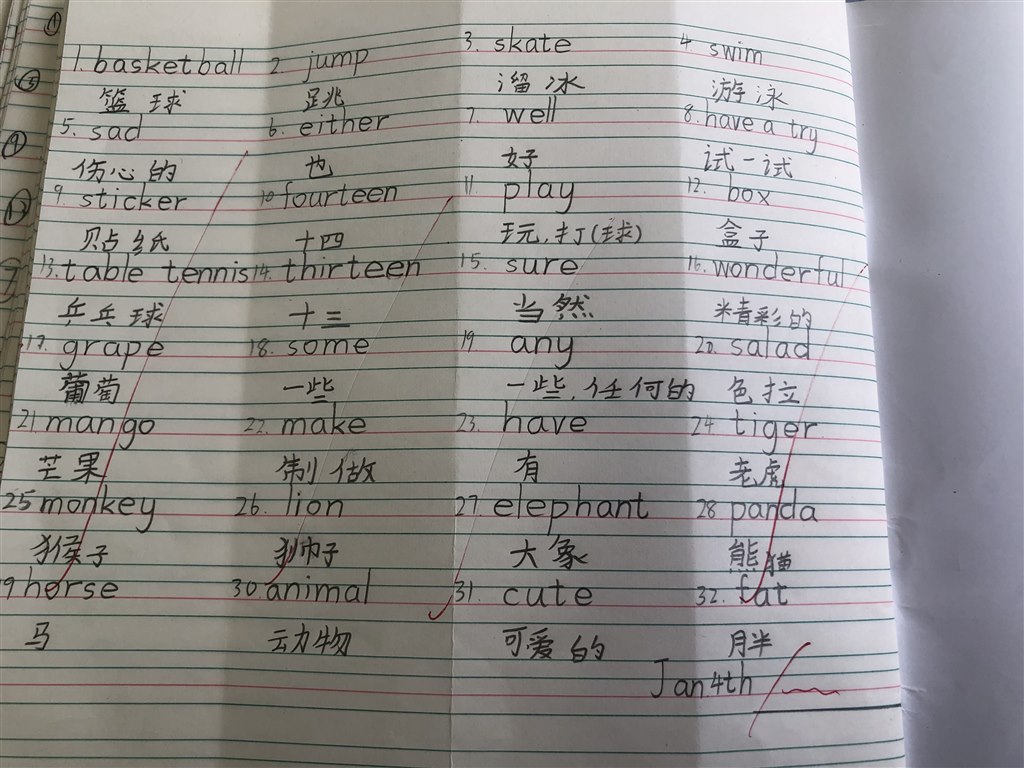 1. basketball 2. jump 3. skate 4. swim
篮球 跳 溜冰 游泳
5. sad 6. either 7. well 8. have a try
伤心的 也 好 试一试
9. sticker 10 fourteen 11. play 12. box
贴纸 十四 玩,打(球) 盒子
13. table tennis 14. thirteen 15. sure 16. wonderful
乒乓球 十三 当然 精彩的
17. grape 18. some 19 any 20. salad
葡萄 一些 一些,任何的 色拉
21 mango 22. make 23. have 24 tiger
芒果 制做 有 老虎
25 monkey 26. lion 27 elephant 28 panda
猴子 狮子 大象 熊猫
9 horse 30 animal 31. cute 32. fat
马 动物 可爱的 胖
Jan 4th